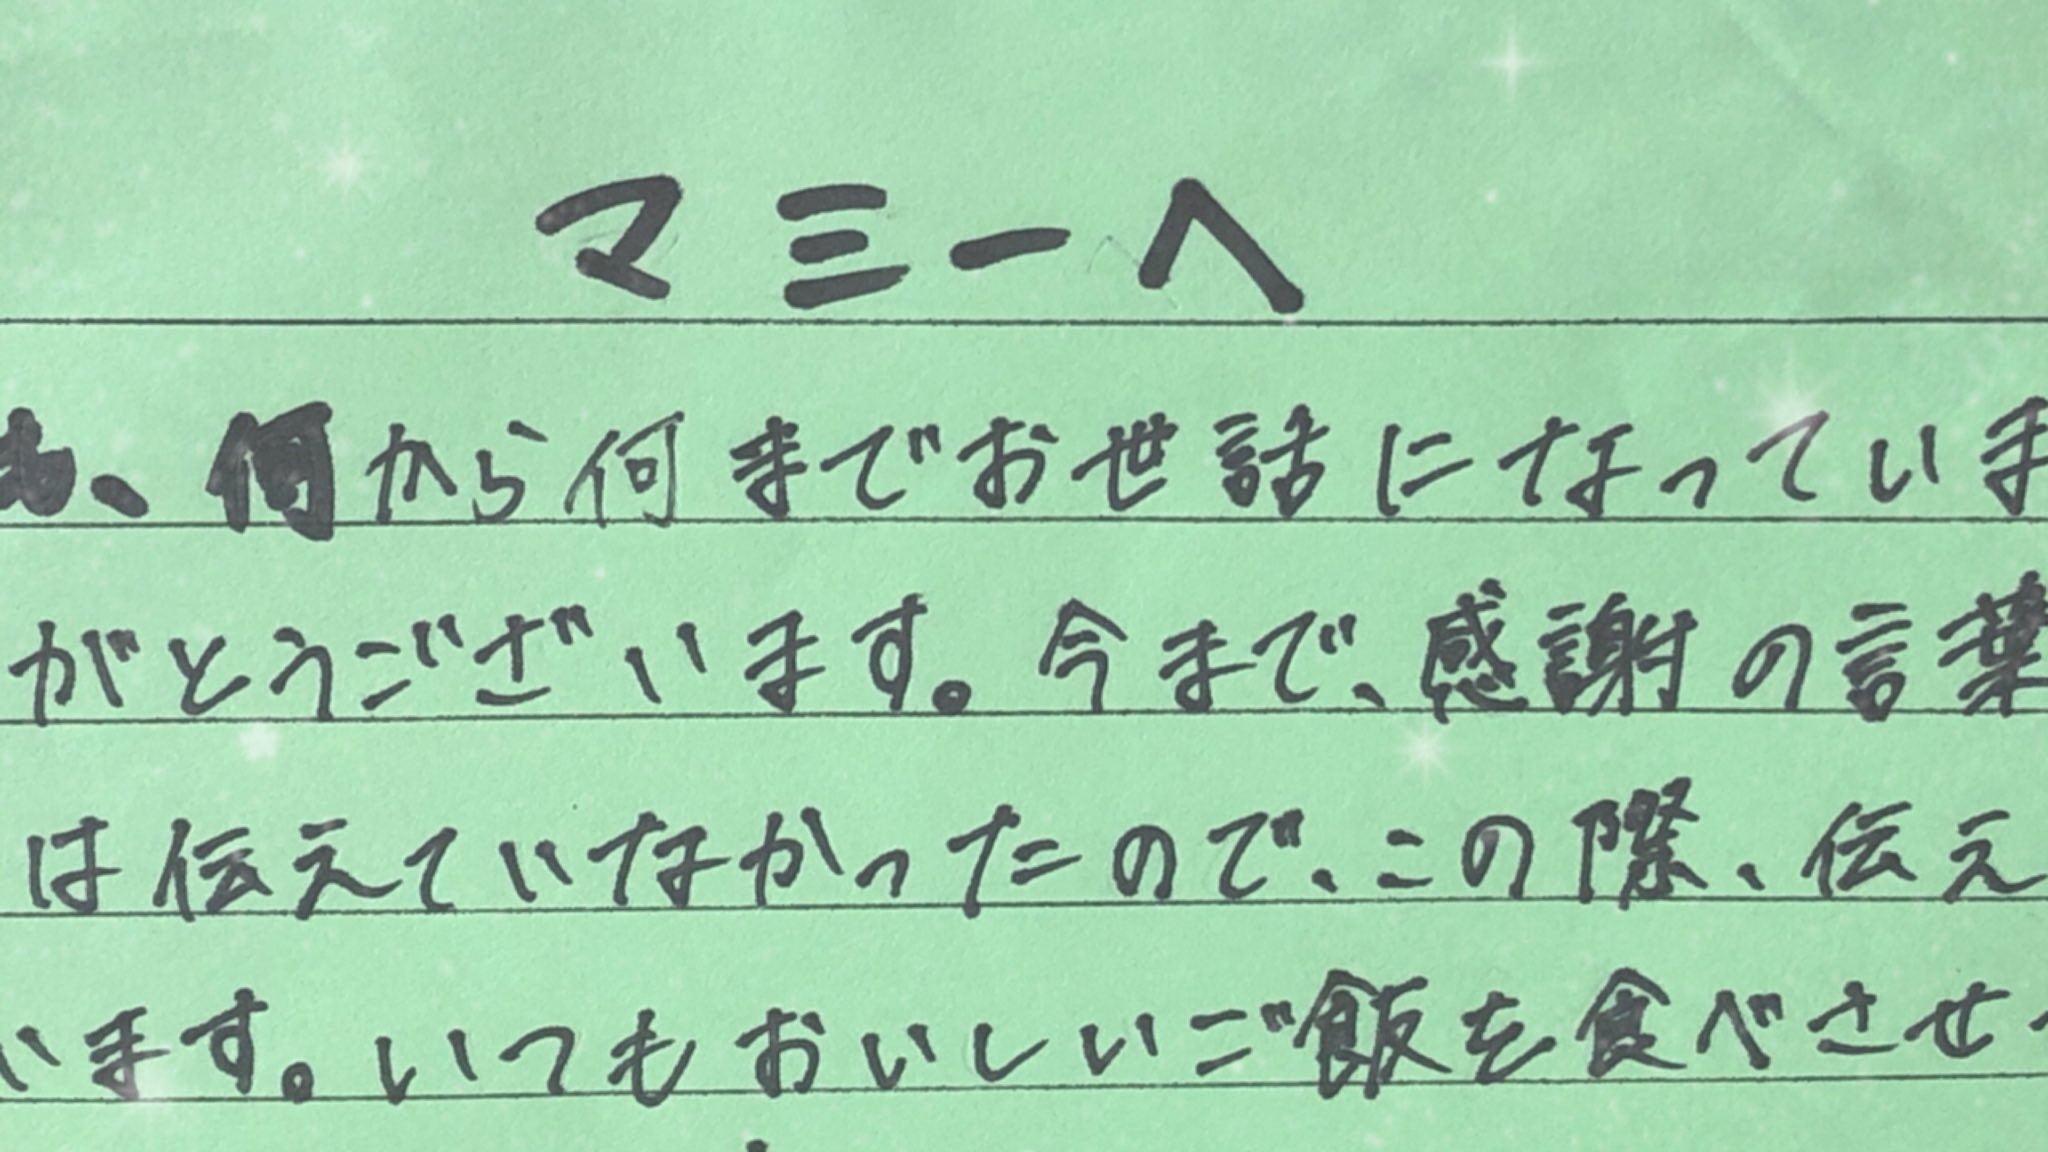 マミーへ
も、何から何までお世話になっていま
がとうございます。今まで、感謝の言葉
は伝えていなかったので、この際、伝え
います。いつもおいしいご飯を食べさせて